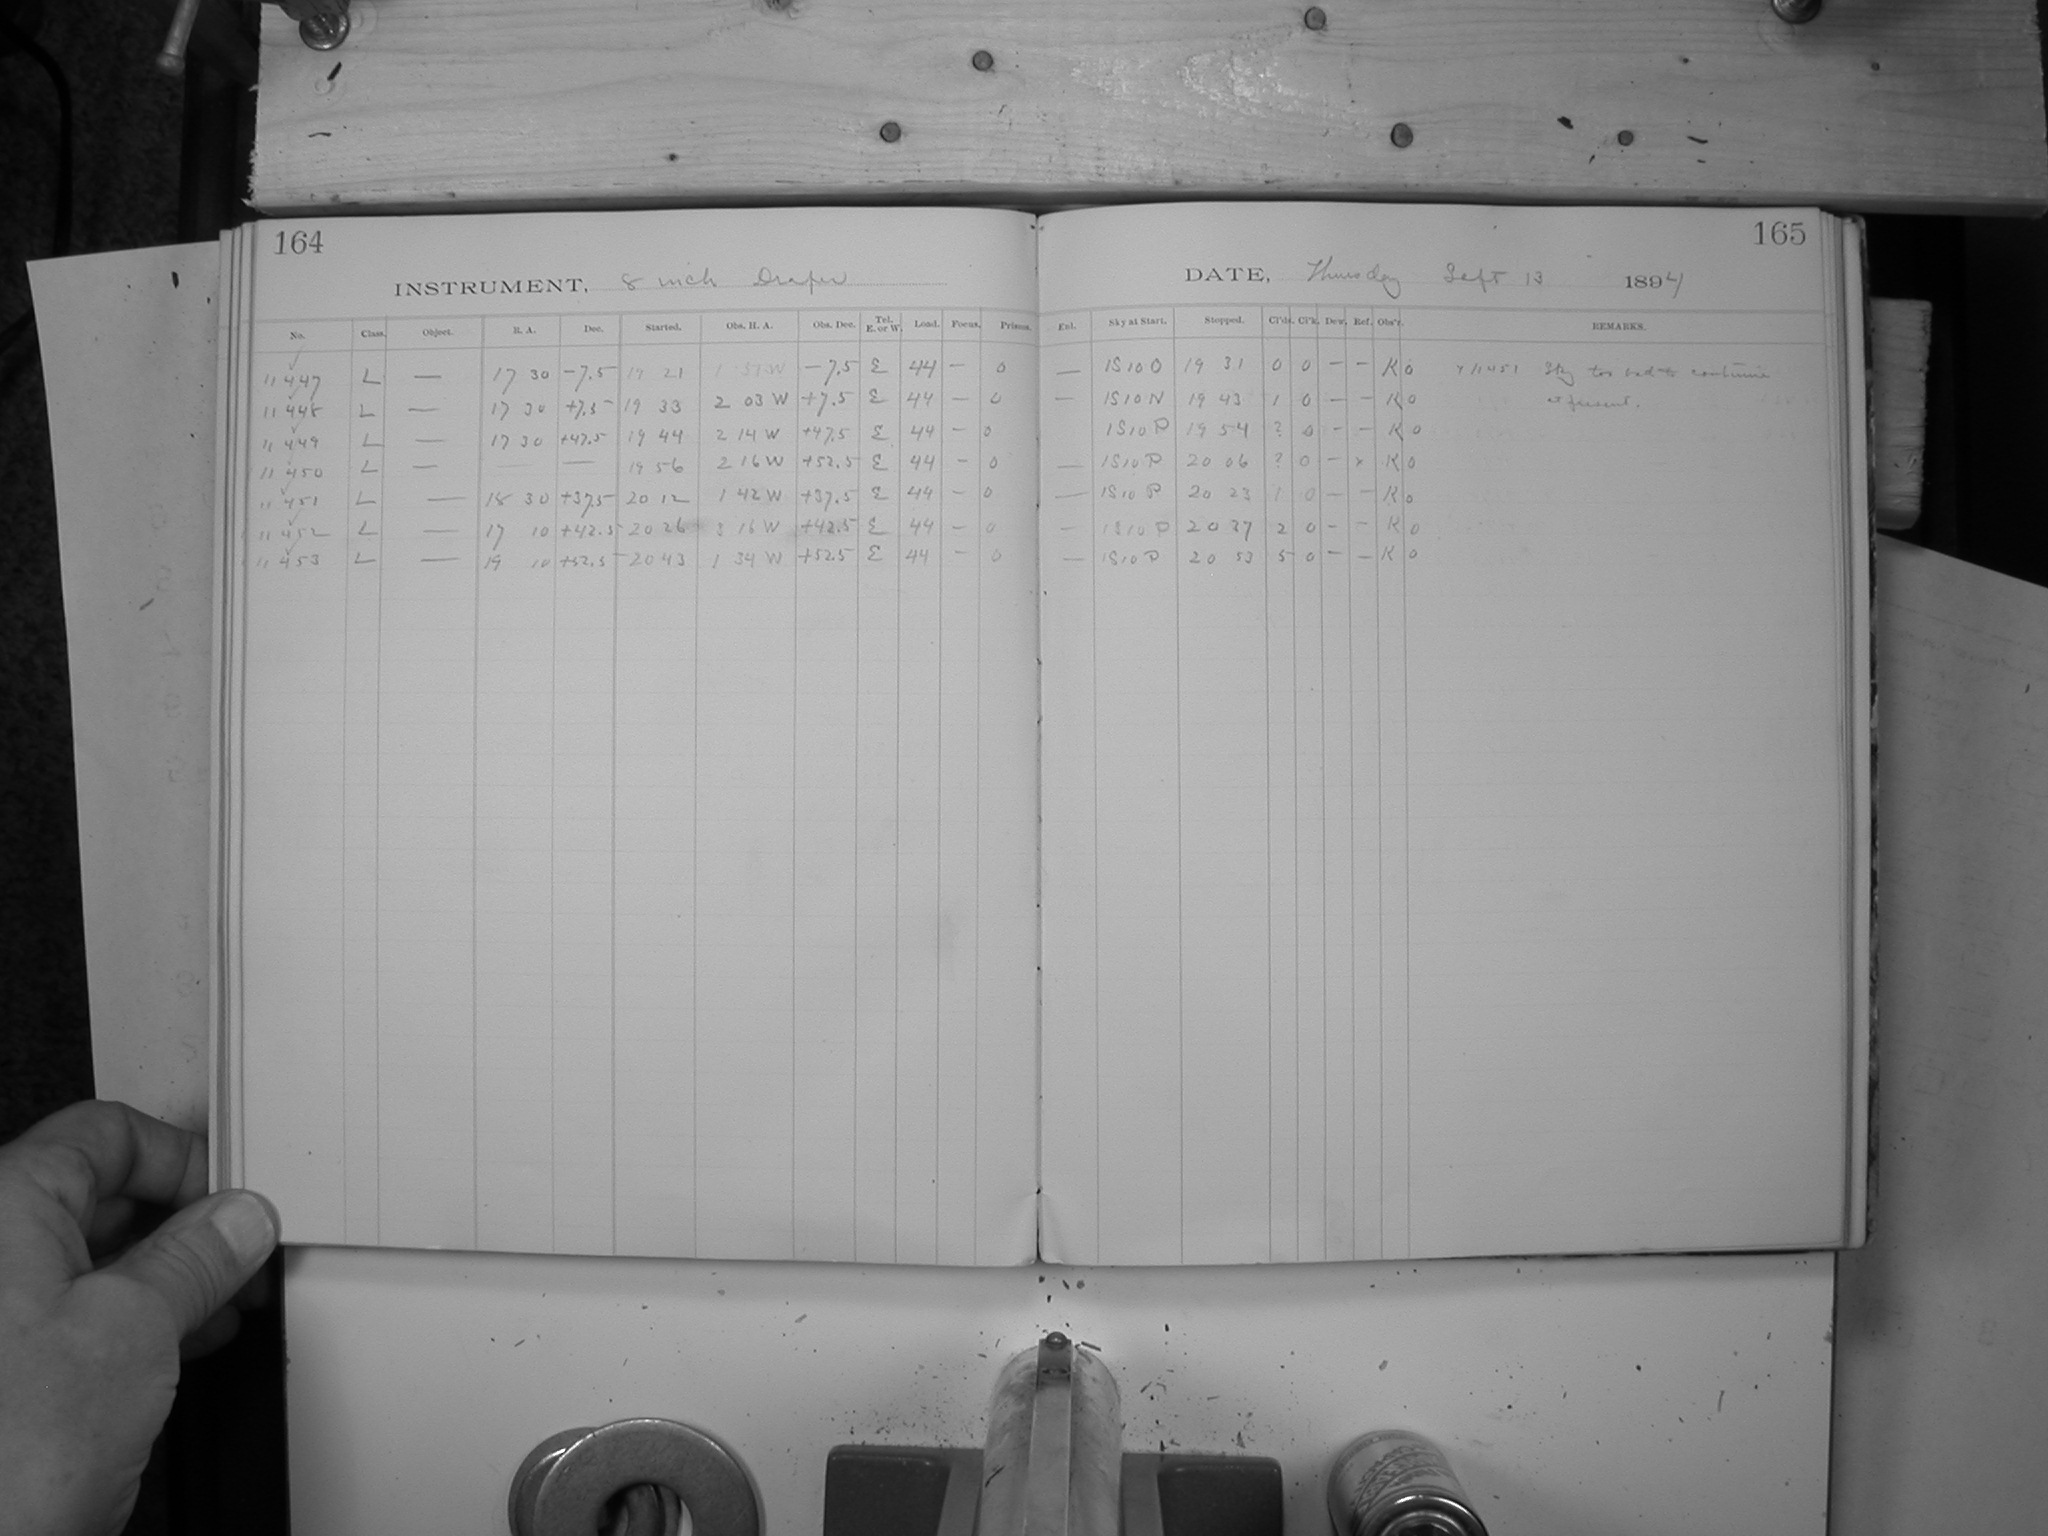 164
165
INSTRUMENT, 8 inch Draper
DATE, Thursday Sept 13 1894
No. Class. Object. R. A. Dec. Started. Obs. H. A. Obs. Dec. Tel. E. or W. Load. Focus. Prisms. Enl. Sky at Start. Stopped. Cl'ds. Cl'k. Dew. Ref. Obs'r. REMARKS.
11447 L — 17 30 -7.5 19 21 1 51 W -7.5 E 44 - 0 — 1S10O 19 31 0 0 - - K 0 x 11451 Sky too bad to continue
11448 L — 17 30 +7.5 19 33 2 03 W +7.5 E 44 - 0 — 1S10N 19 43 1 0 - - K 0 at present.
11449 L — 17 30 +47.5 19 44 2 14 W +47.5 E 44 - 0 1S10P 19 54 ? 0 - - K 0
11450 L — — — 19 56 2 16 W +52.5 E 44 - 0 — 1S10P 20 06 ? 0 - x K 0
11451 L — 18 30 +37.5 20 12 1 42 W +37.5 E 44 - 0 — 1S10P 20 23 1 0 - - K 0
11452 L — 17 10 +42.5 20 26 3 16 W +42.5 E 44 - 0 - 1S10P 20 37 2 0 - - K 0
11453 L — 19 10 +52.5 20 43 1 34 W +52.5 E 44 - 0 — 1S10P 20 53 5 0 - - K 0